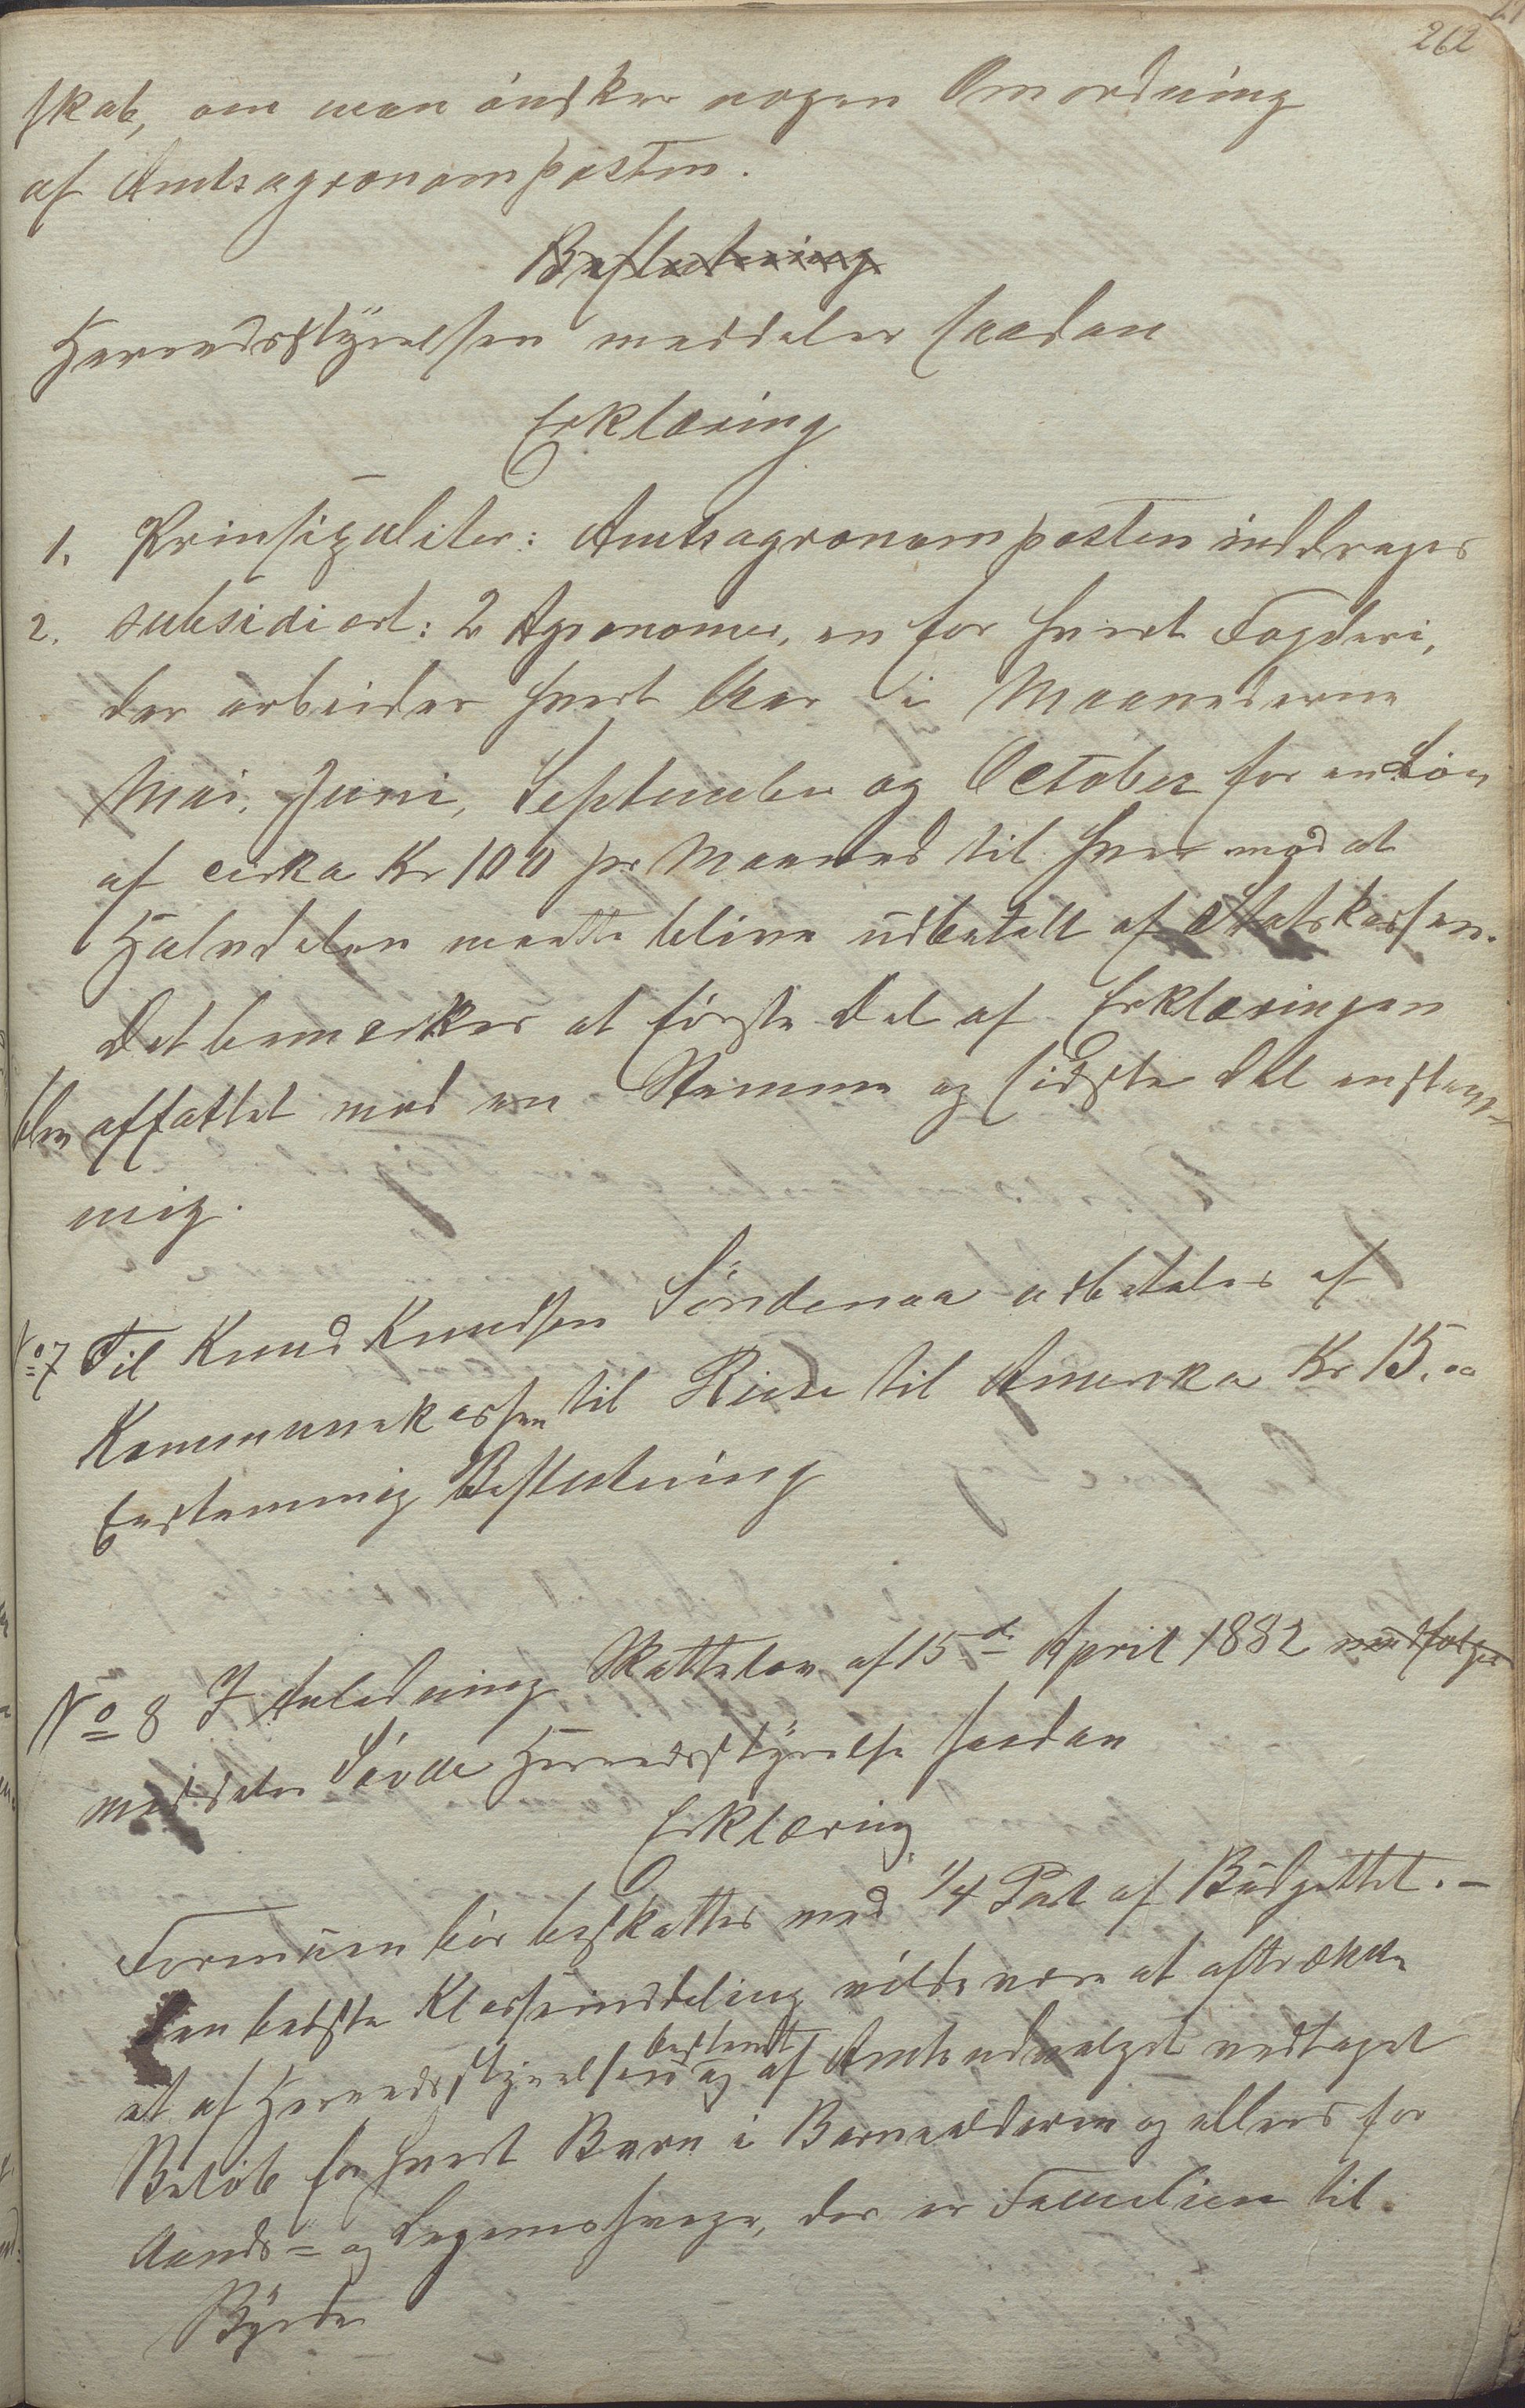 262
skab, om man ønsker nogen Omordning
af Amtsagronomposten.
Beslutning
Herredsstyrelsen meddeler saadan
Erklæring
1. Prinsipaliter: Amtsagronomposten inddrages
2. subsidiert: 2 Agronomer, en for hvert Fogderi,
der arbeider hvert Aar i Maanederne
Mai, Juni, September og October for en Løn
af cirka Kr 100 pr Maaned til hver mod at
Halvdelen maatte blive udbetalt af Statskassen.
Det bemærkes at første Del af Erklæringen
blev affattet med en Stemme og sidste Del enstem-
mig.
No 7 Til Knud Knudsen Søndenaa udbetales af
Kommunekassen til Reise til Amerika Kr 15.00
Enstemmig Beslutning
No 8 I Anledning Skattelov af 15de April 1882 medfølger
meddeler Søvde Herredsstyrelse saadan
Erklæring
Formuen bør beskattes med 1/4 Part af Budgettet. -
Den bedste Klasseinddeling vilde være at aftrække
et af Herredsstyrelsen bestemt og af Amtsudvalget vedtaget
Beløb for hvert Barn i Barnealderen og ellers for
Aands- og Legemssvage, der er Familien til
Byrde